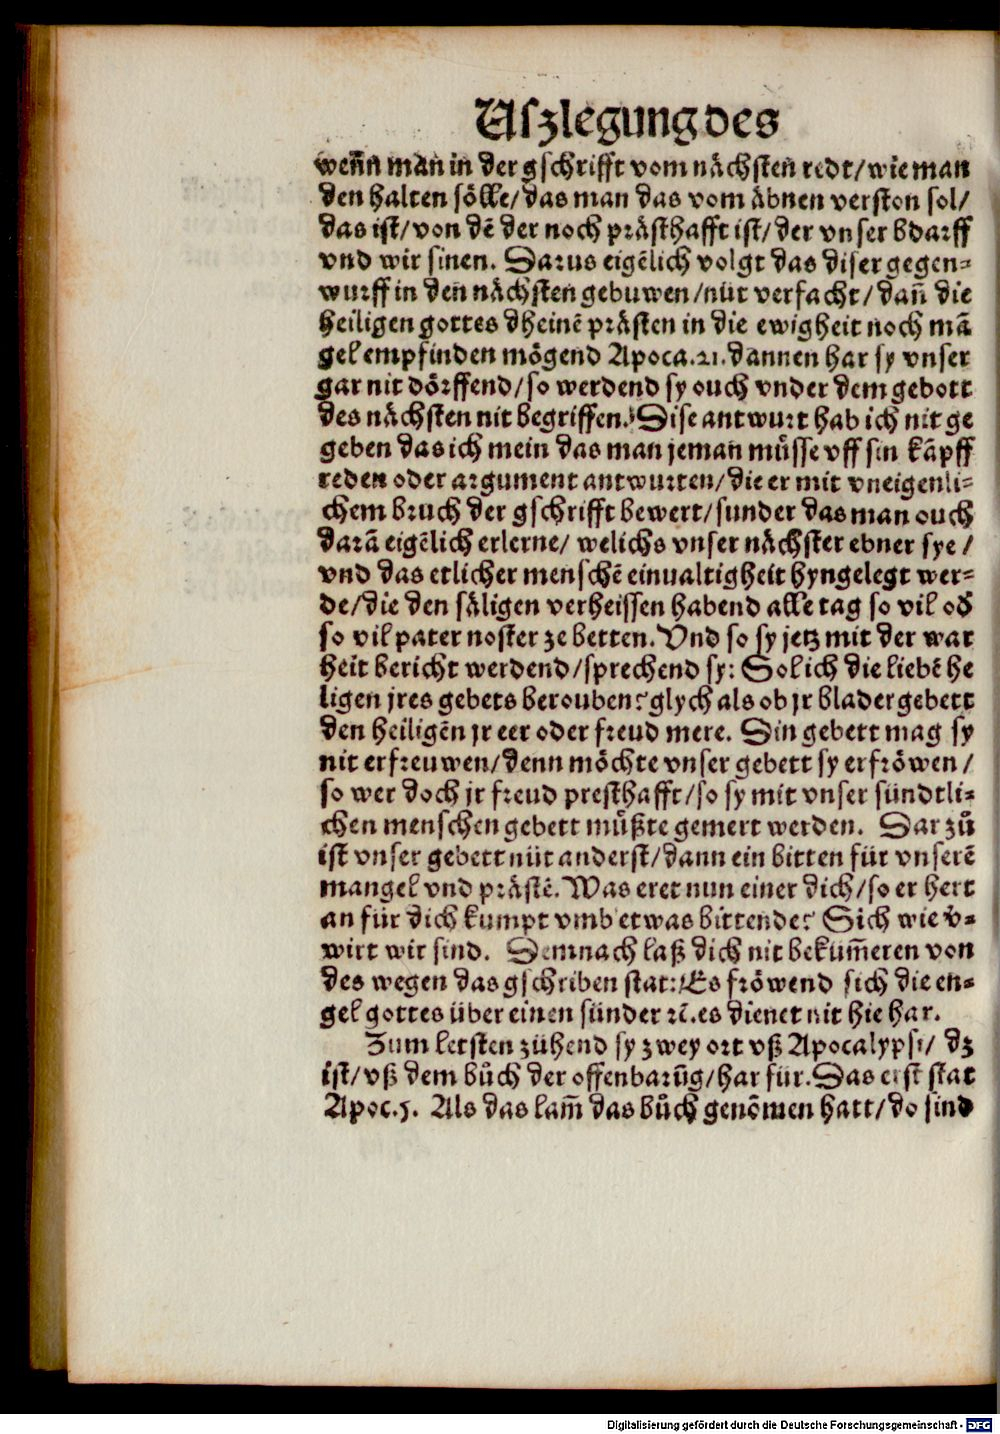 Uſzlegung des
wenn man in der gſchrifft vom nächſten redt/ wie man
den halten sölle/ das man das vom äbnen verſton sol/
das iſt/ von dē der noch präſthafft iſt/ der vnſer bdarff
vnd wir ſinen. Darus eigēlich volgt das diſer gegen⸗
wurff in den nächſten gebuwen/ nüt verfacht/ dañ die
heiligen gottes dheinē präſten in die ewigheit noch mā
gel empfinden mögend Apoca.21. dannen har ſy vnſer
gar nit dörffend/ ſo werdend ſy ouch vnder dem gebott
des nächſten nit begriffen. Diſe antwurt hab ich nit ge
geben das ich mein das man jeman müſſe vff ſin kāpff
reden oder argument antwurten/ die er mit vneigenli⸗
chem bruch der gſchrifft bewert/ ſunder das man ouch
darā eigēlich erlerne/ welichs vnſer nächſter ebner ſye/
vnd das etlicher menſchē einualtigheit hyngelegt wer⸗
de/ die den ſäligen verheiſſen habend alle tag ſo vil od̄
ſo vil pater noſter ze betten. Vnd ſo ſy jetz mit der war
heit bericht werdend/ ſprechend ſy: Sol ich die liebē he
ligen jres gebets berouben? glych als ob jr bladergebett
den heiligēn jr eer oder freud mere. Din gebett mag ſy
nit erfreuwen/ denn möchte vnſer gebett ſy erfröwen/
ſo wer doch jr freud preſthafft/ ſo ſy mit vnſer ſündtli⸗
chen menſchen gebett müßte gemert werden. Dar zů
iſt vnſer gebett nüt anderſt/ dann ein bitten für vnſerē
mangel vnd präſtē. Was eret nun einer dich/ ſo er hert
an für dich kumpt vmb etwas bittende? Sich wie v̄⸗
wirt wir ſind. Demnach laß dich nit bekūm̄eren von
des wegen das gſchriben ſtat: Es fröwend ſich die en⸗
gel gottes über einen ſünder ꝛc̄. es dienet nit hie har.
Zum letſten zühend ſy zwey ort vß Apocalypſi/ dz
iſt/ vß dem bůch der offenbarūg/ har für. Das erſt ſtat
Apoc.5. Als das lam̄ das bůch genōmen hatt/ do ſind
Digitalisierung gefördert durch die Deutsche Forschungsgemeinschaft - DFG